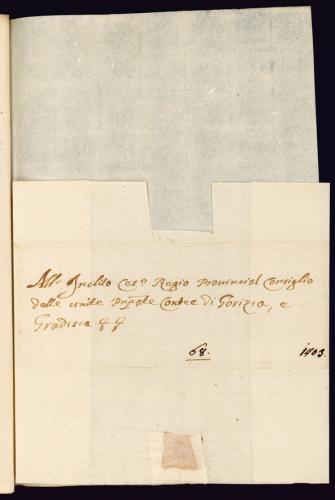 All' Inclito Ces.º Regio Provincial Consiglio
delle unite Prīpate Contee di Gorizia, e
Gradisca
68. 1403.